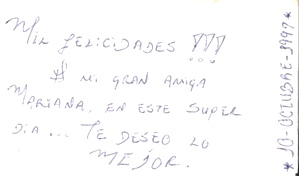 MIL FELICIDADES !!!
A MI GRAN AMIGA
MARIANA, EN ESTE SUPER
DIA... TE DESEO LO
MEJOR.
* 10-OCTUBRE-1997 *